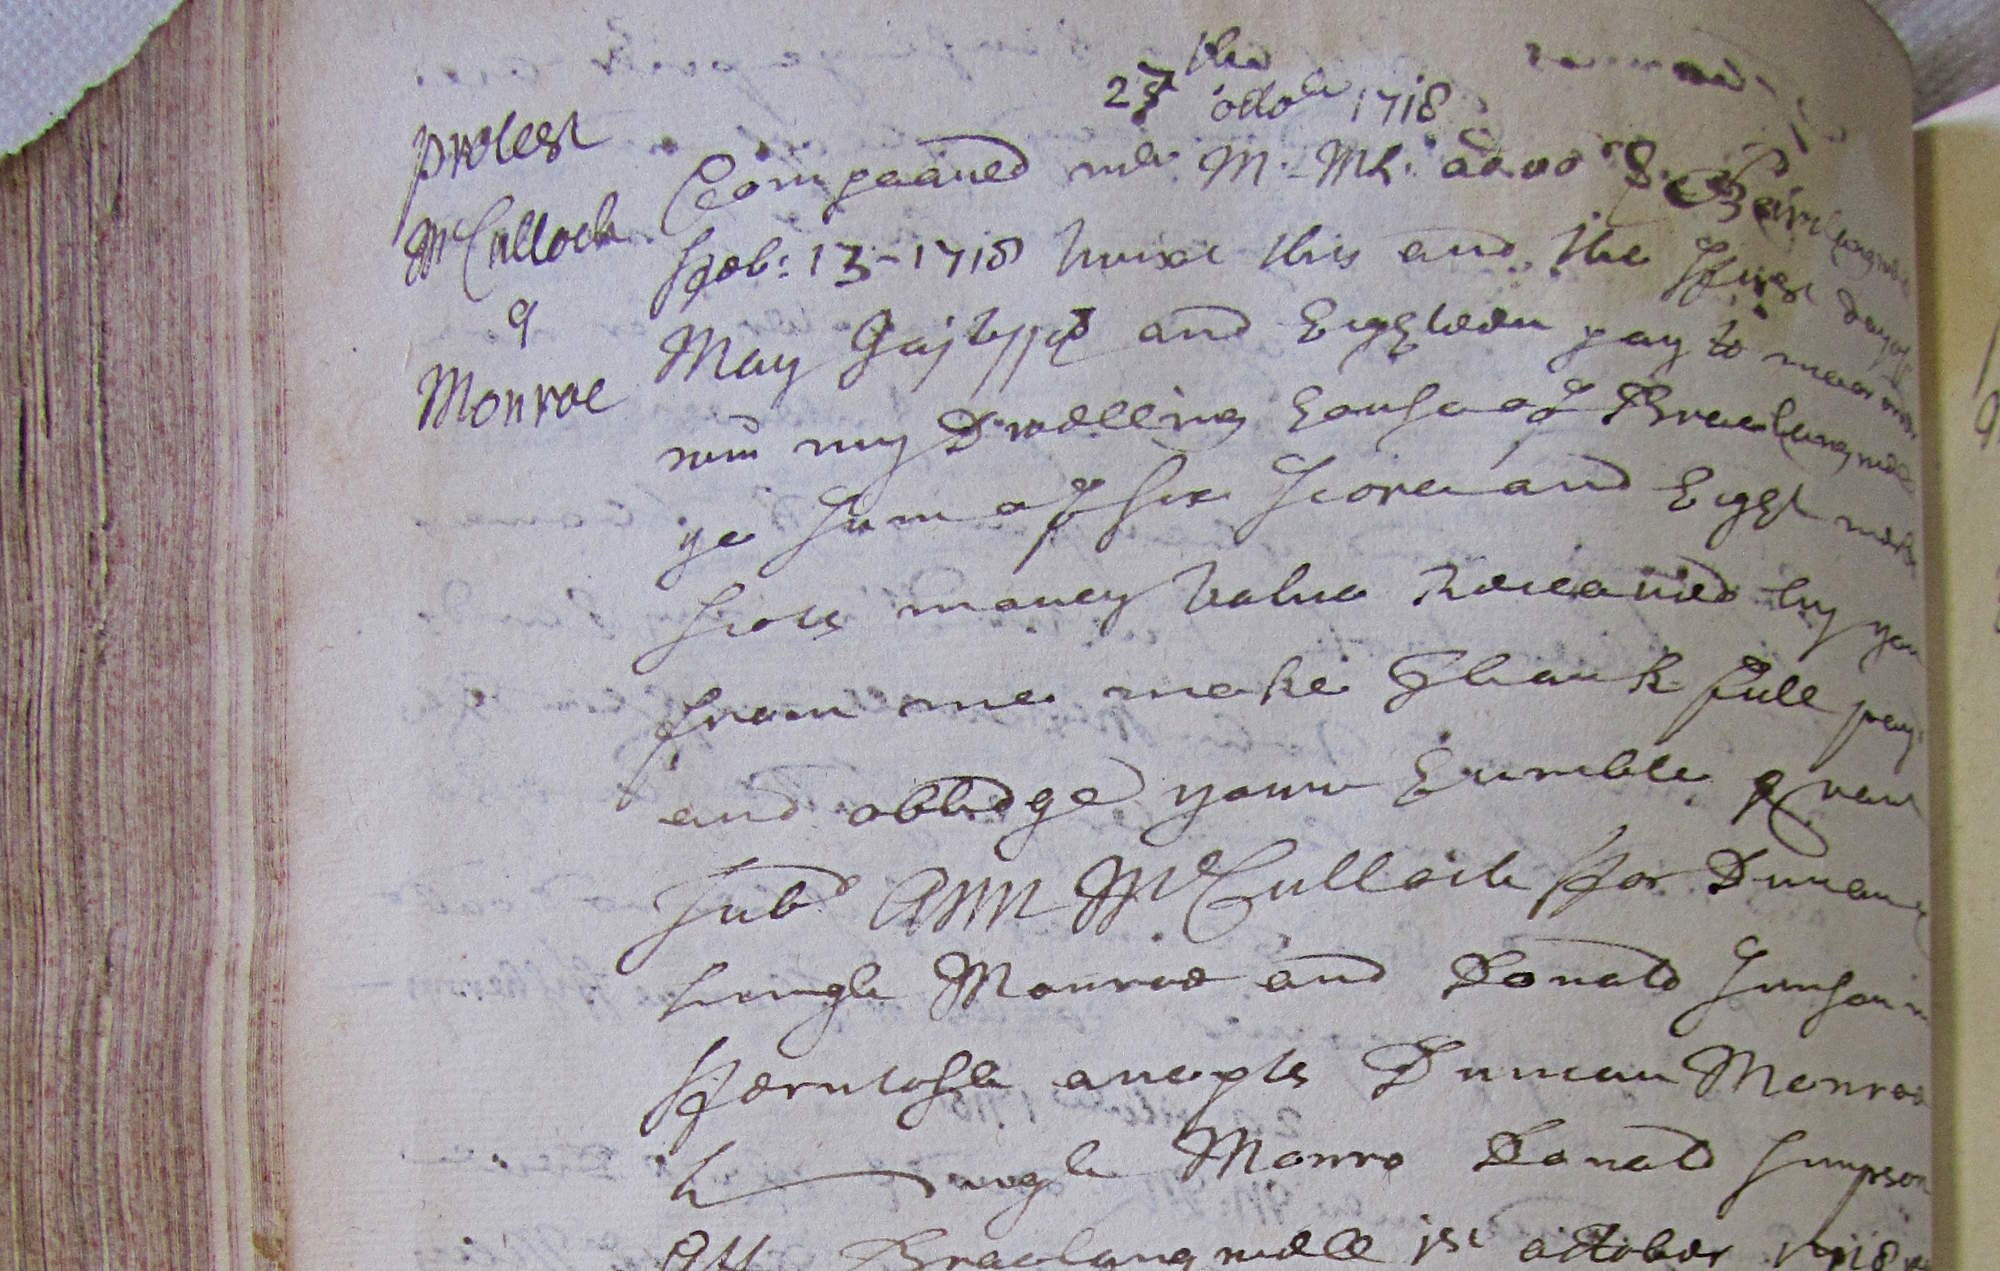 23 the octobr 1718
protest
McCulloch
q
Monroe
Compeared mr M: Mk: advo
ffeb: 13-1718 twixt this and the ffirst day of
May Jajvijc and Eighteen pay to me or order
my Dwelling house of Braelangwell
ye sum of six score and Eight merks
scots money value Received by you
from me make thankfull pay
and obbidge your humble servant
subd Ann McCulloch ffor Duncan
heugh Monroe and Donald Simson in
fferntosh accepts Duncan Monroe
h——ugh Monro Donald Simpson
Att Braelangwell jst october 1718